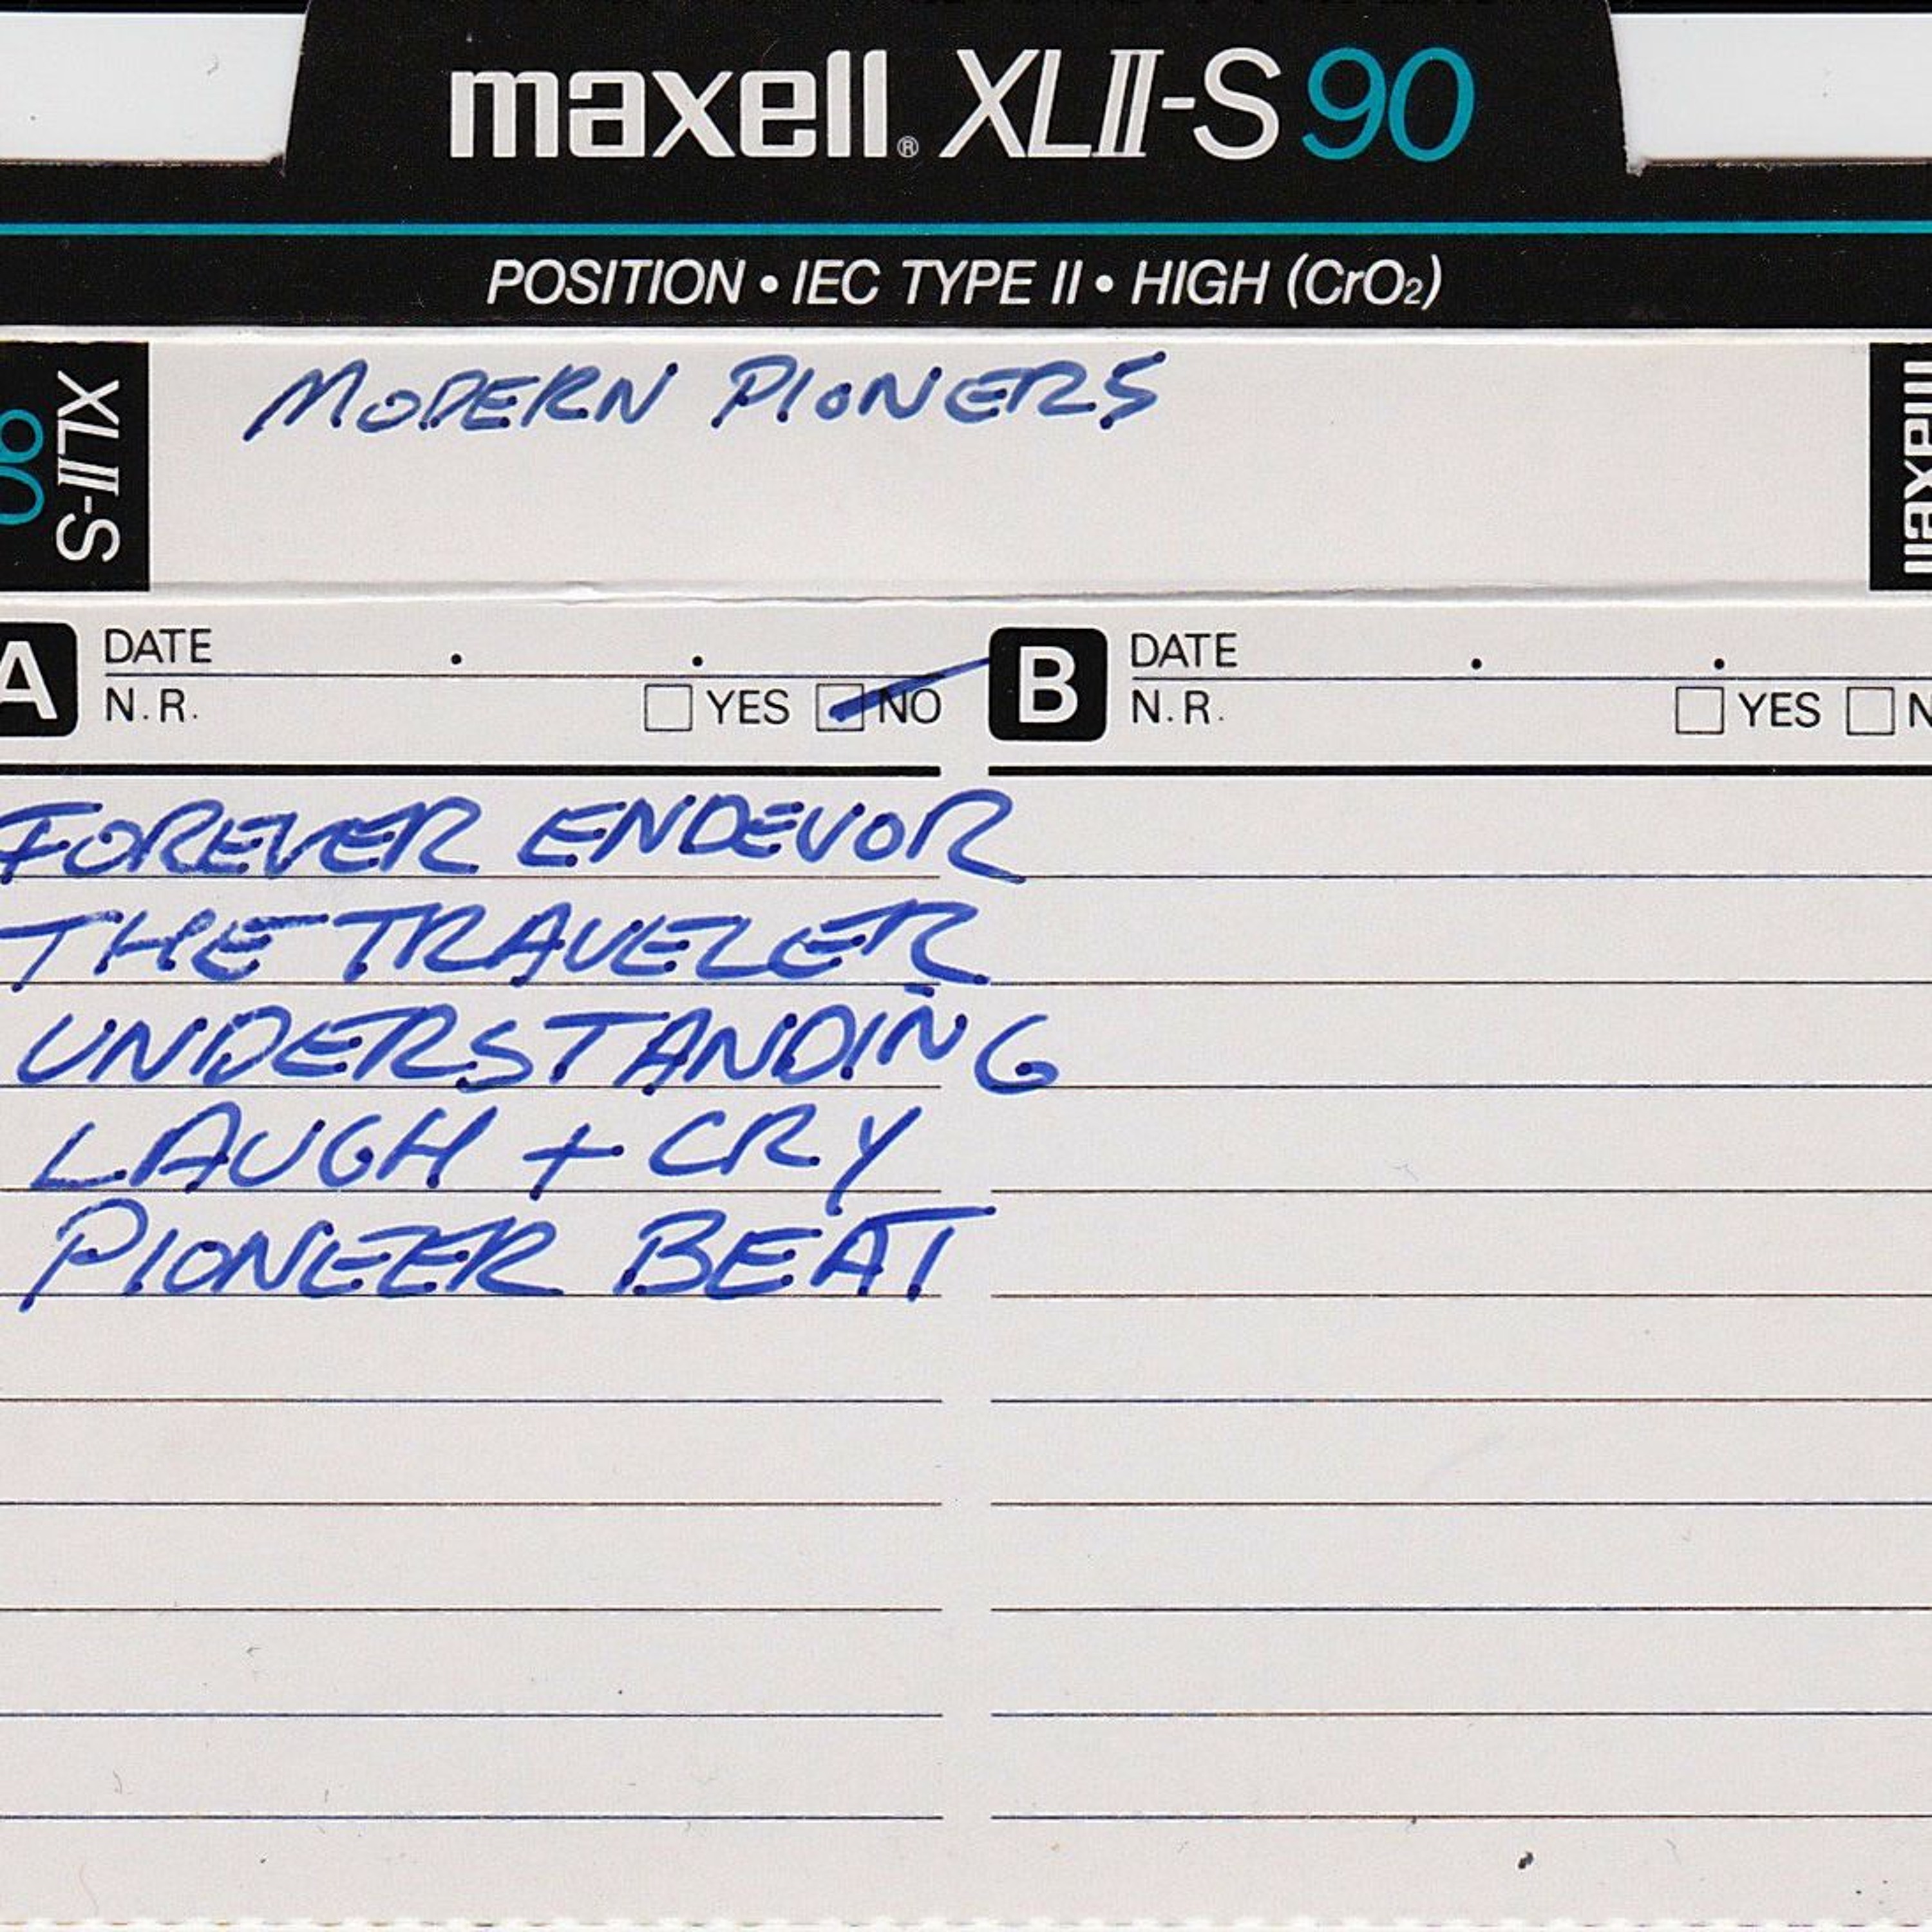 maxell® XLII-S 90
POSITION • IEC TYPE II • HIGH (CrO₂)
XLII-S 90
MODERN PIONERS
maxell
A DATE . .
N.R. YES NO
B DATE . .
N.R. YES N
FOREVER ENDEVOR
THE TRAVELER
UNDERSTANDING
LAUGH + CRY
PIONEER BEAT